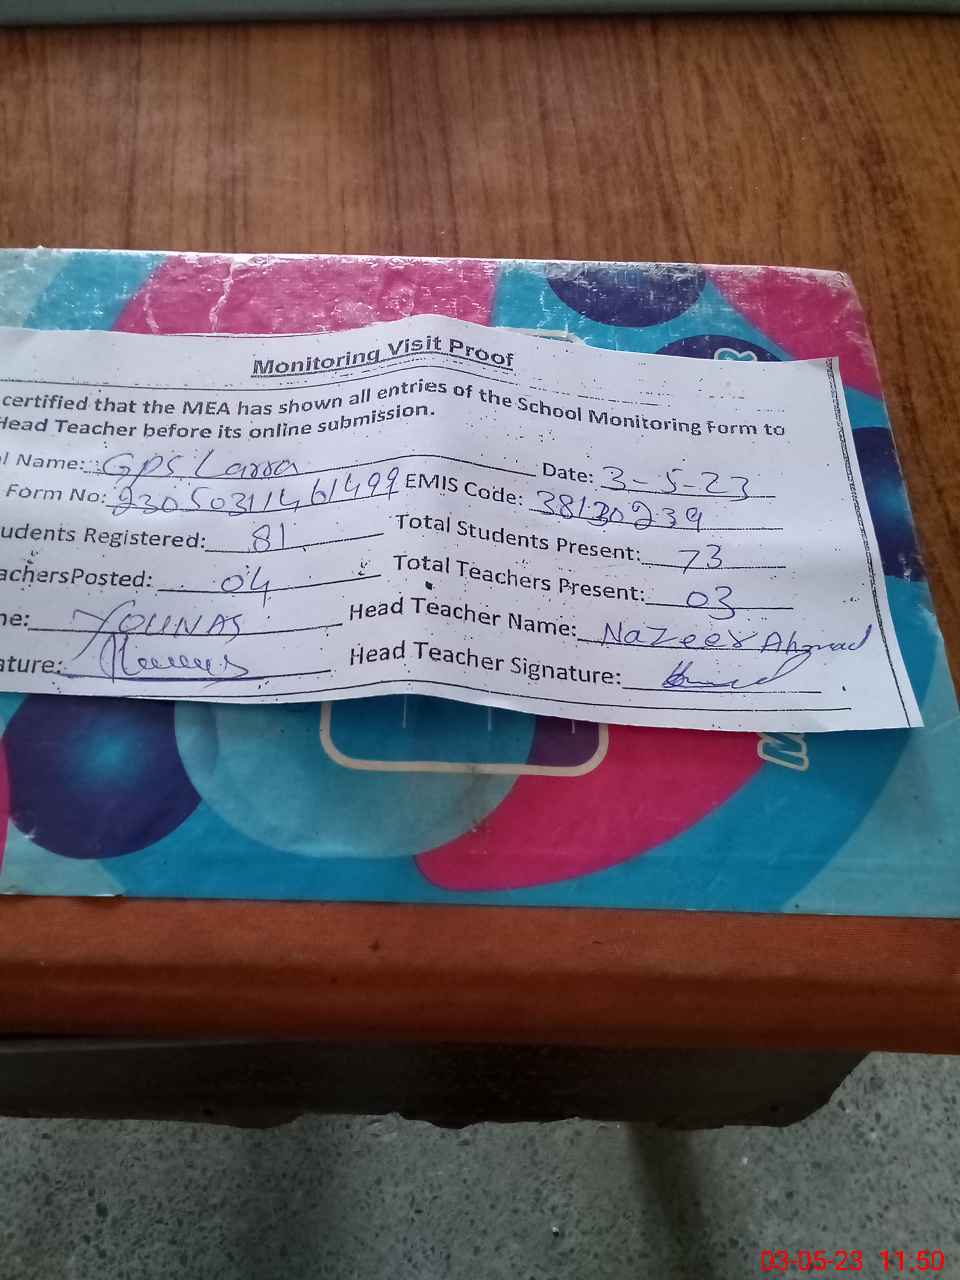 Monitoring Visit Proof
certified that the MEA has shown all entries of the School Monitoring Form to
Head Teacher before its online submission.
l Name: GPS Larra Date: 3-5-23
Form No: 23050311461499 EMIS Code: 38130239
udents Registered: 81 Total Students Present: 73
achersPosted: 04 Total Teachers Present: 03
ne: YOUNAS Head Teacher Name: Nazeer Ahmad
ature: Head Teacher Signature:
03-05-23 11.50